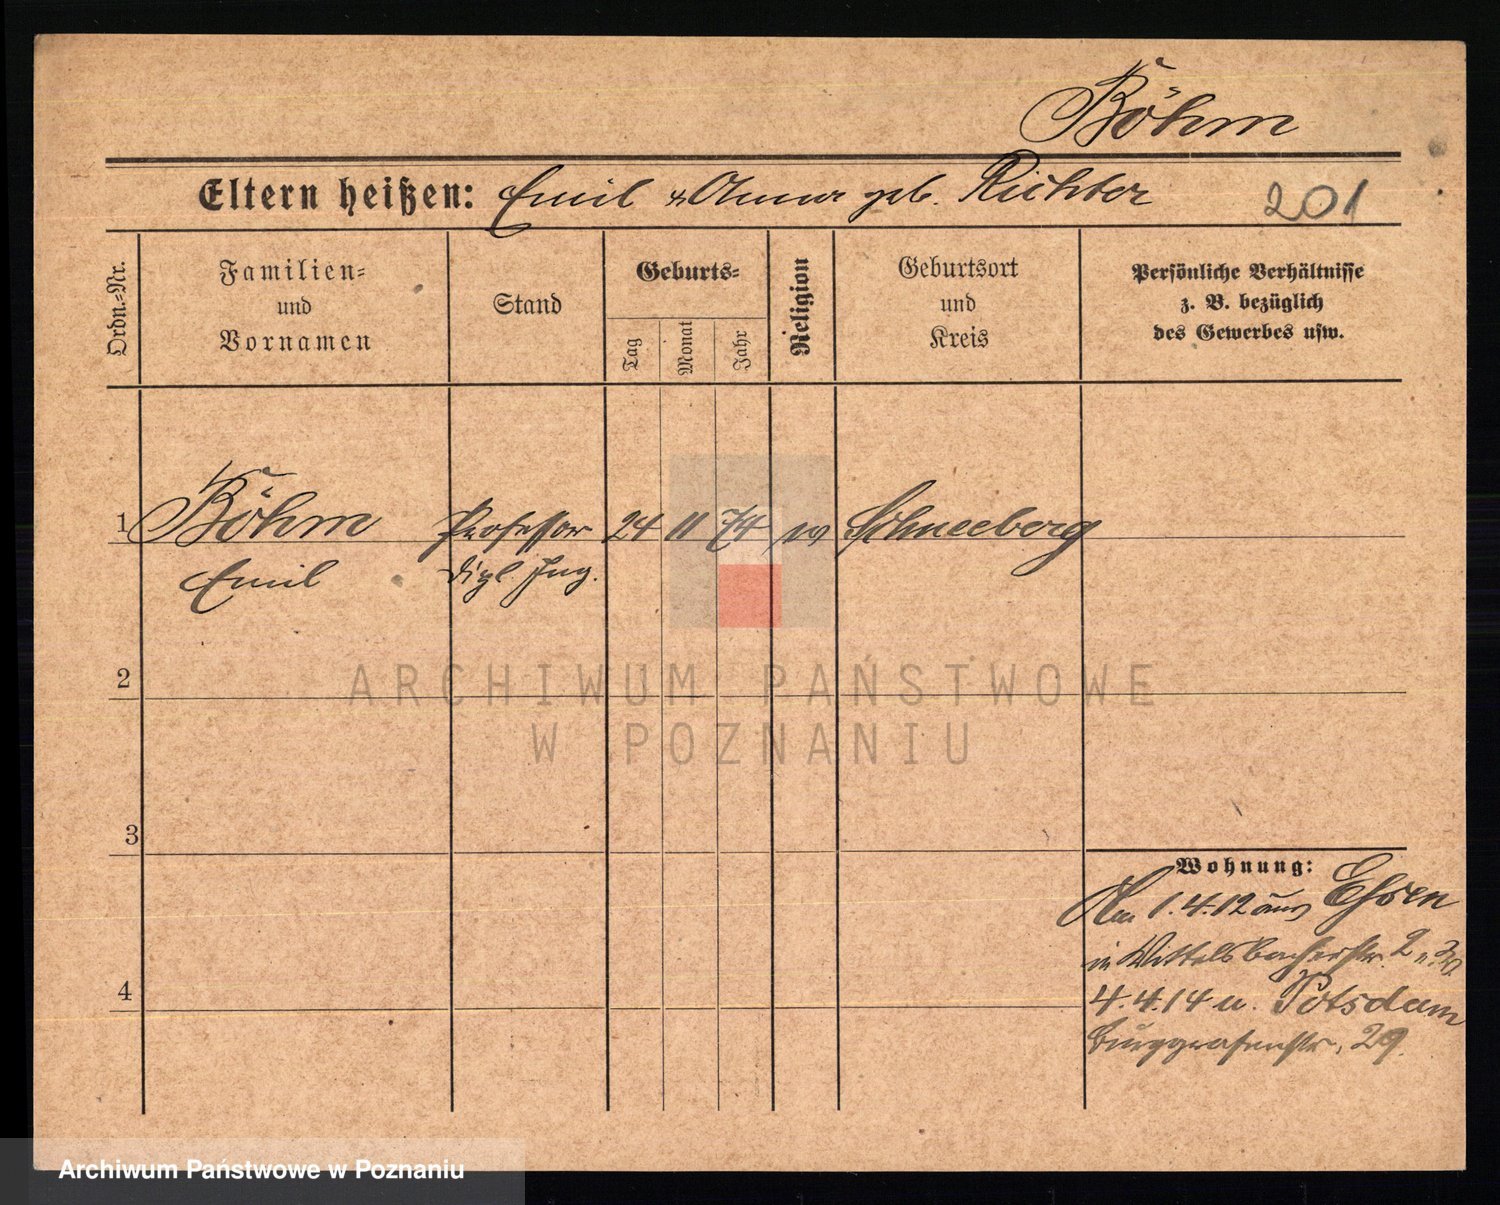 Böhm
Eltern heißen: Emil u Anna geb. Richter 201
Ordn.=Nr.
Familien=
und
Vornamen
Stand
Geburts=
Tag
Monat
Jahr
Religion
Geburtsort
und
Kreis
Persönliche Verhältnisse
z. B. bezüglich
des Gewerbes usw.
1 Böhm Professor 24 11 74 Schneeberg
Emil Dipl. Ing.
2
ARCHIWUM PAŃSTWOWE
W POZNANIU
3
Wohnung:
1.4.12 aus Essen
in Wittelsbacherstr. 2
4
4.4.14 n. Potsdam
Burggrafenstr. 29.
Archiwum Państwowe w Poznaniu